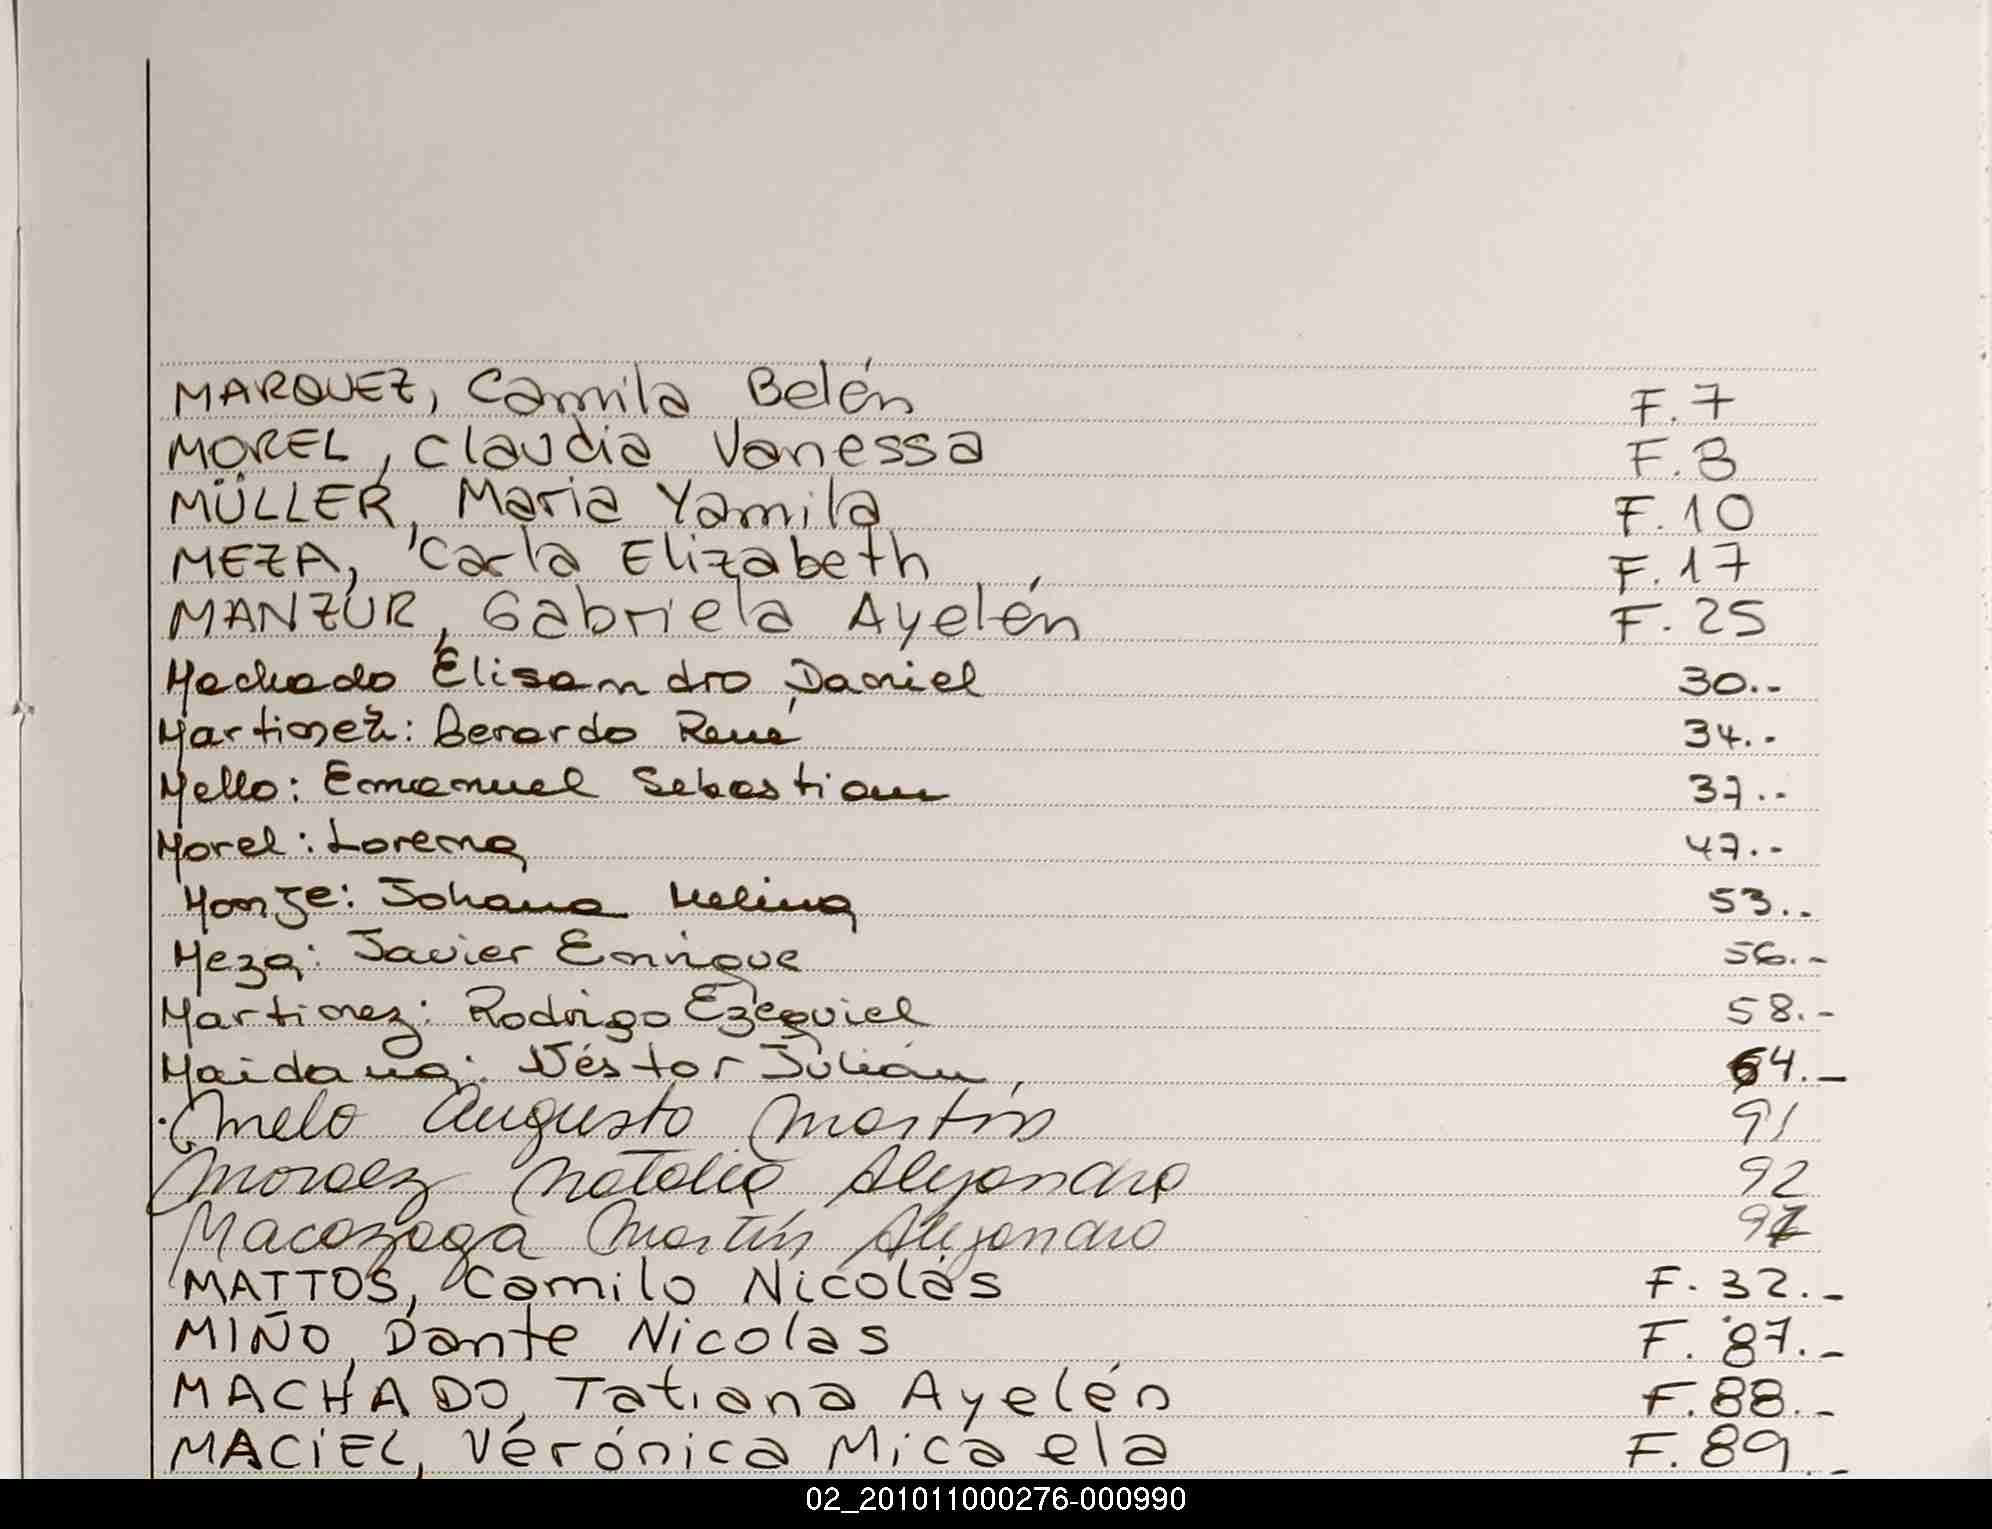 MARQUEZ, Camila Belén F. 7
MOREL, Claudia Vanessa F. 8
MÜLLER, Maria Yamila F. 10
MEZA, Carla Elizabeth F. 17
MANZUR, Gabriela Ayelén F. 25
Machado Elisandro Daniel 30.-
Martinez: Gerardo René 34.-
Mello: Emanuel Sebastian 37.-
Morel: Lorena 47.-
Monje: Johana Melina 53.-
Meza: Javier Enrique 56.-
Martinez: Rodrigo Ezequiel 58.-
Maidana: Néstor Julián 64.-
Melo Augusto Martín 91
Moraez Natalia Alejandra 92
Macozaga Martín Alejandro
MATTOS, Camilo Nicolás F. 32.-
MIÑO, Dante Nicolas F. 87.-
MACHADO, Tatiana Ayelén F. 88.-
MACIEL, Verónica Micaela F. 89.-
02_201011000276-000990